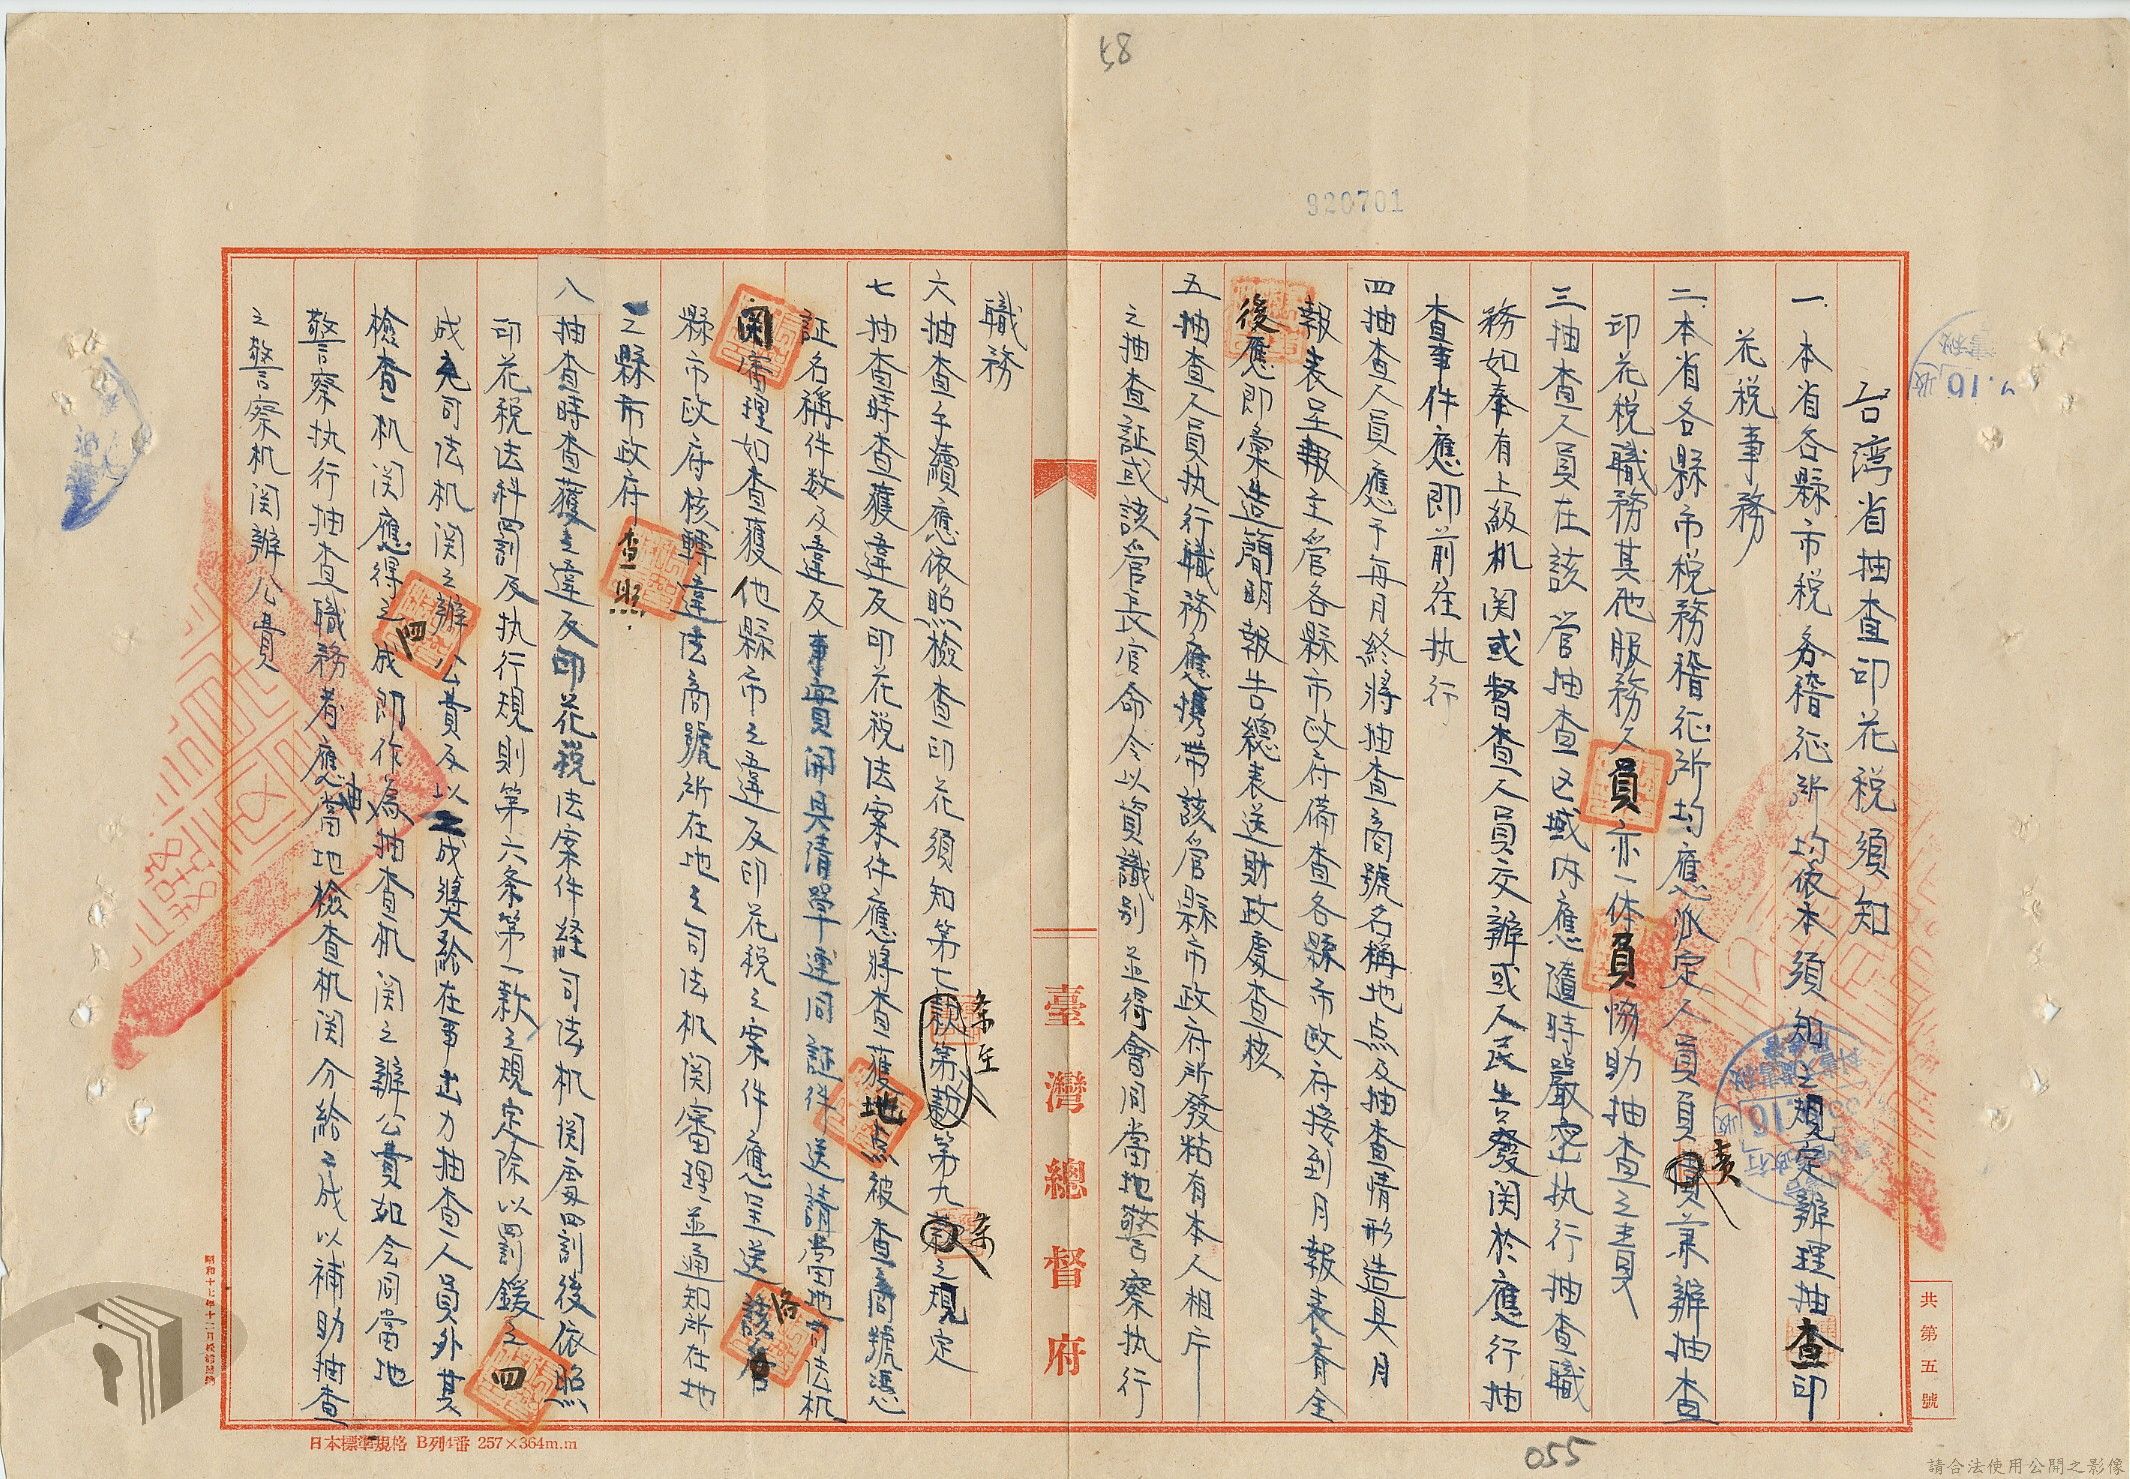 58
920701
台湾省抽查印花税須知
一.本省各縣市税務稽征所均依本須知之規定辦理抽查印
花税事務
二.本省各縣市税務稽征所均應派定人員負責兼辦抽查
印花税職務其他服務人員亦一体員協助抽查之責
三抽查人員在該管抽查区域内應隨時嚴密执行抽查職
務如奉有上級机関或督查人員交辦或人民告發関於應行抽
查事件應即前往执行
四抽查人員應于每月終將抽查商號名稱地点及抽查情形造具月
報表呈報主管各縣市政府備查各縣市政府接到月報表齊全
後應即彙造簡明報告總表送財政處查核
五抽查人員执行職務應携带該管縣市政府所發粘有本人相片
之抽查証或該管長官命令以資識别並得會同當地警察执行
臺灣總督府
職務
六抽查手續應依照檢查印花須知第七条至第九条之規定
七抽查時查獲違反印花税法案件應將查獲地点被查商號憑
証名稱件数及違反事實開具清單連同証件送請當地司法机
関審理如查獲他縣市之違反印花税之案件應呈送該管
縣市政府核轉違法商號所在地之司法机関審理並通知所在地
之縣市政府查照
八抽查時查獲之違反印花税法案件経司法机関處罰後依照
印花税法科罰及执行規則第六条第一款之規定除以罰鍰之四
成充司法机関之辦公費及以二成獎給在事出力抽查人員外其
檢查机関應得之四成即作為抽查机関之辦公費如会同當地
警察执行抽查職務者應由當地檢查机関分給二成以補助抽查
之警察机関辦公費
共第五號
日本標準規格 B列4番 257×364m.m
055
請合法使用公開之影像